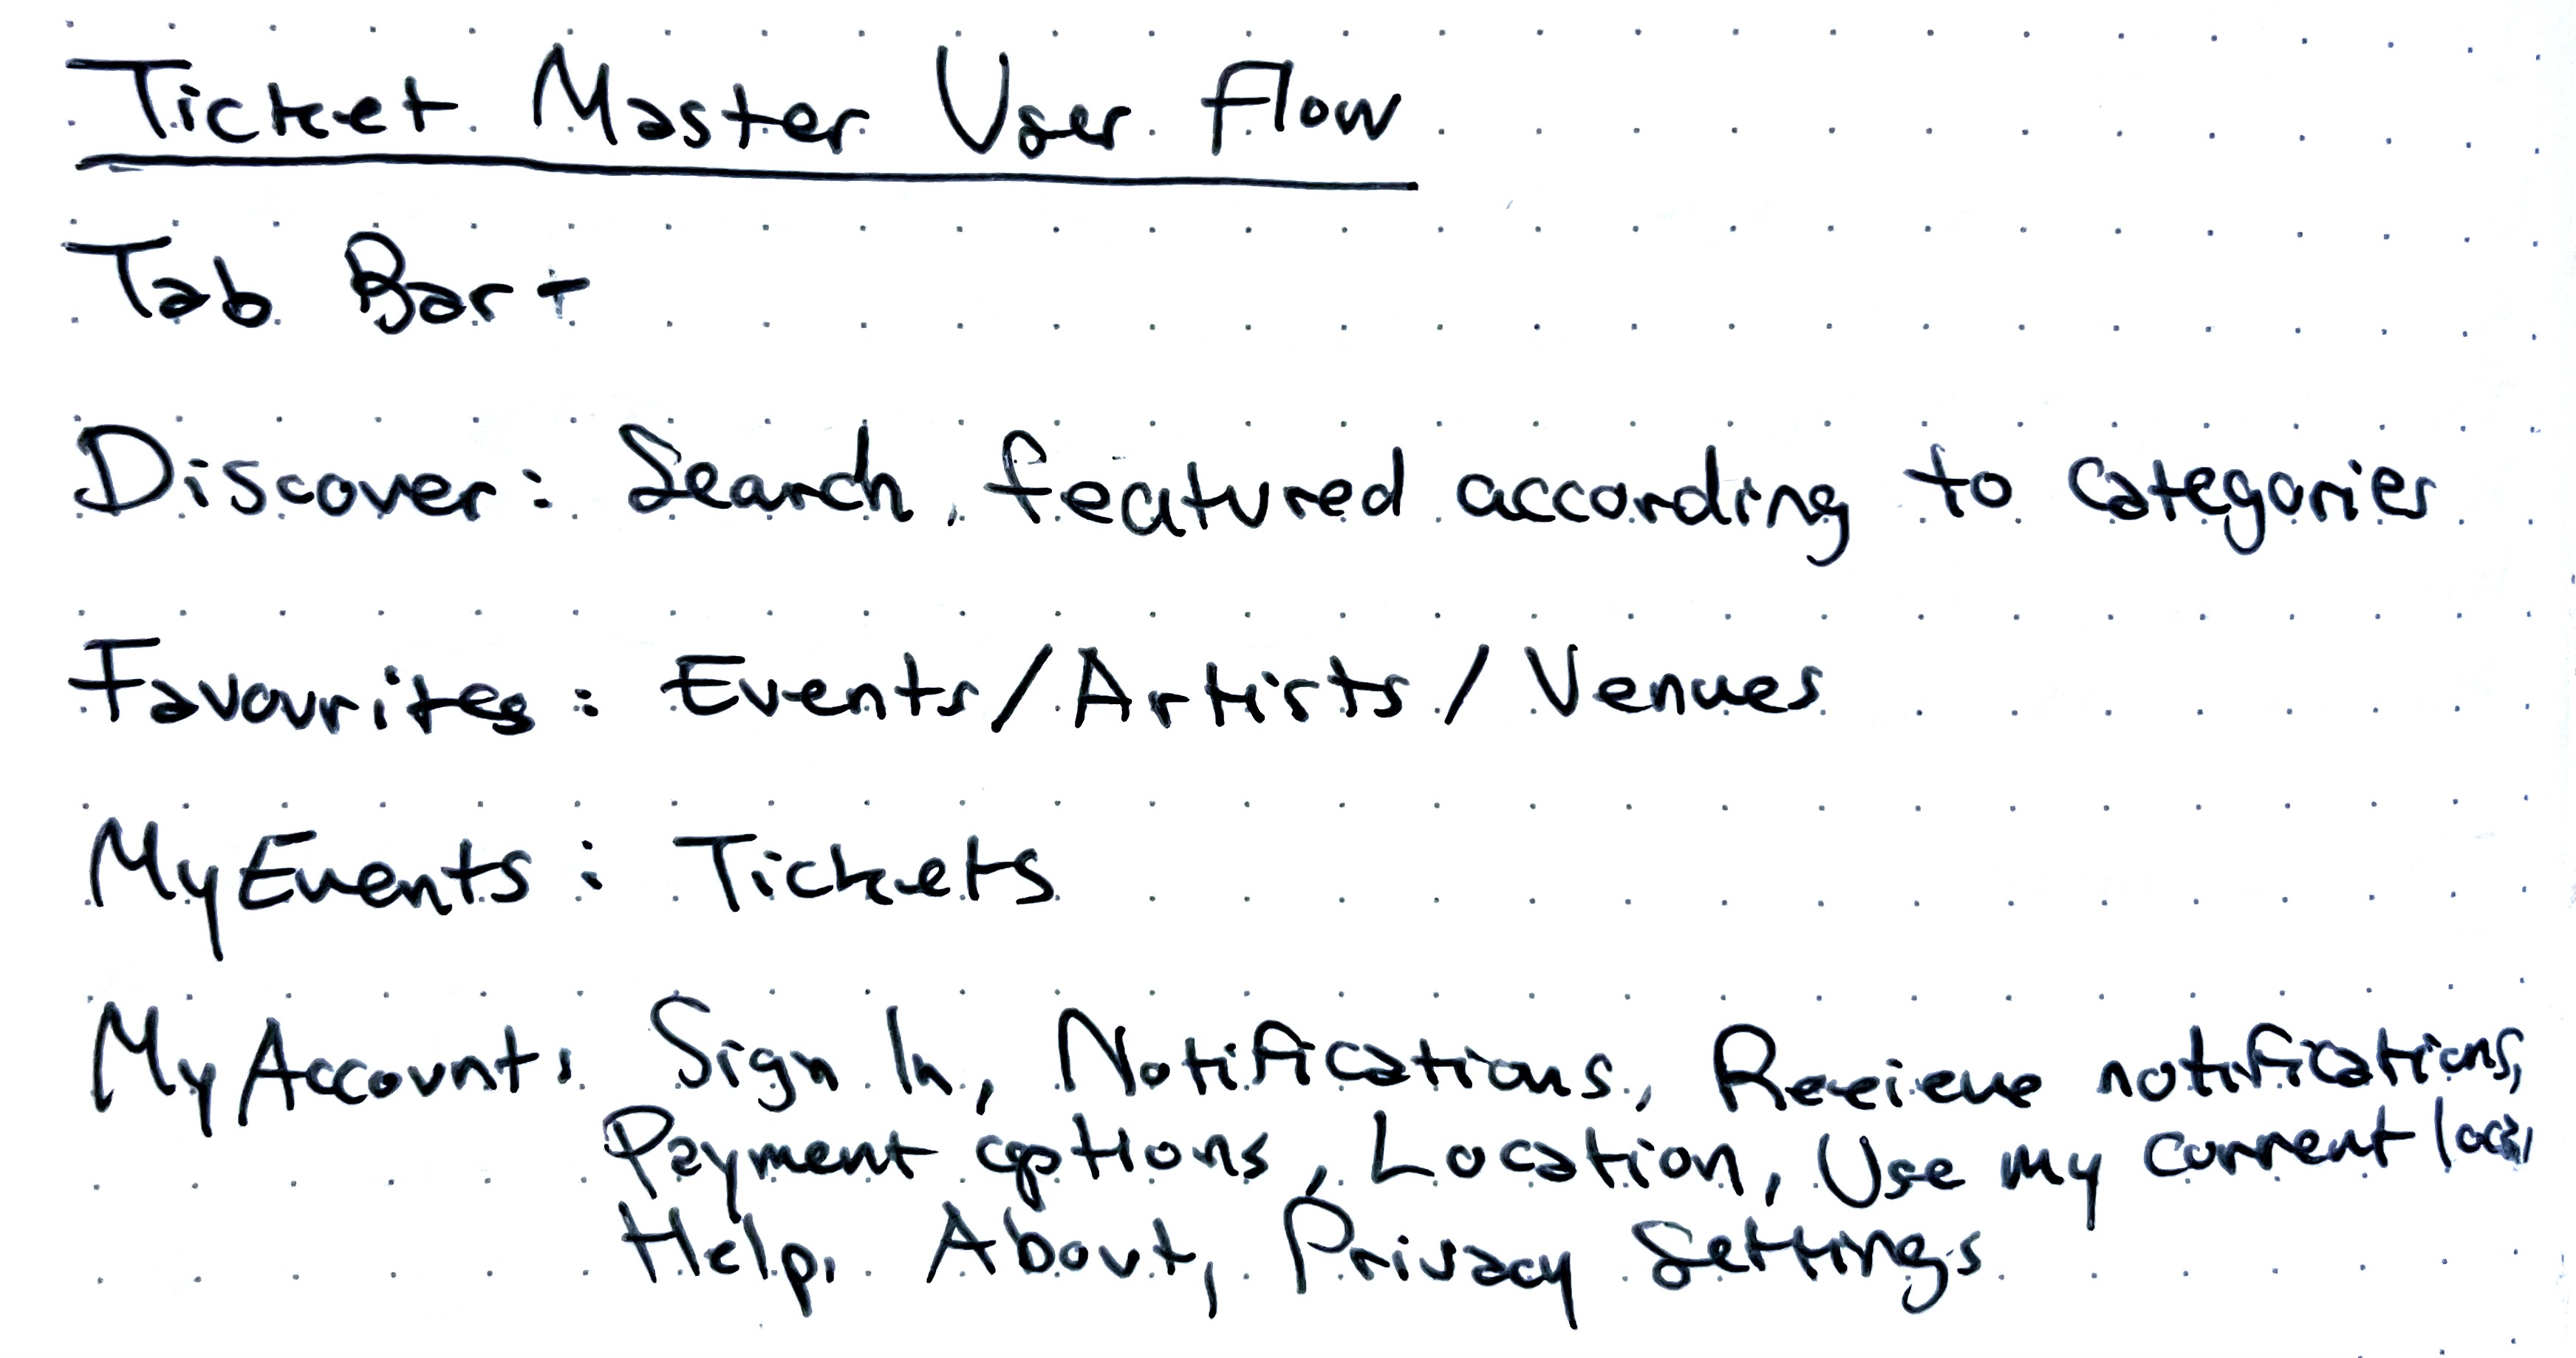 Ticket Master User Flow
Tab Bar -
Discover: Search, featured according to categories
Favourites: Events/Artists/Venues
My Events: Tickets
My Account: Sign In, Notifications, Receieve notifications,
Payment options, Location, Use my current
Help, About, Privacy Settings